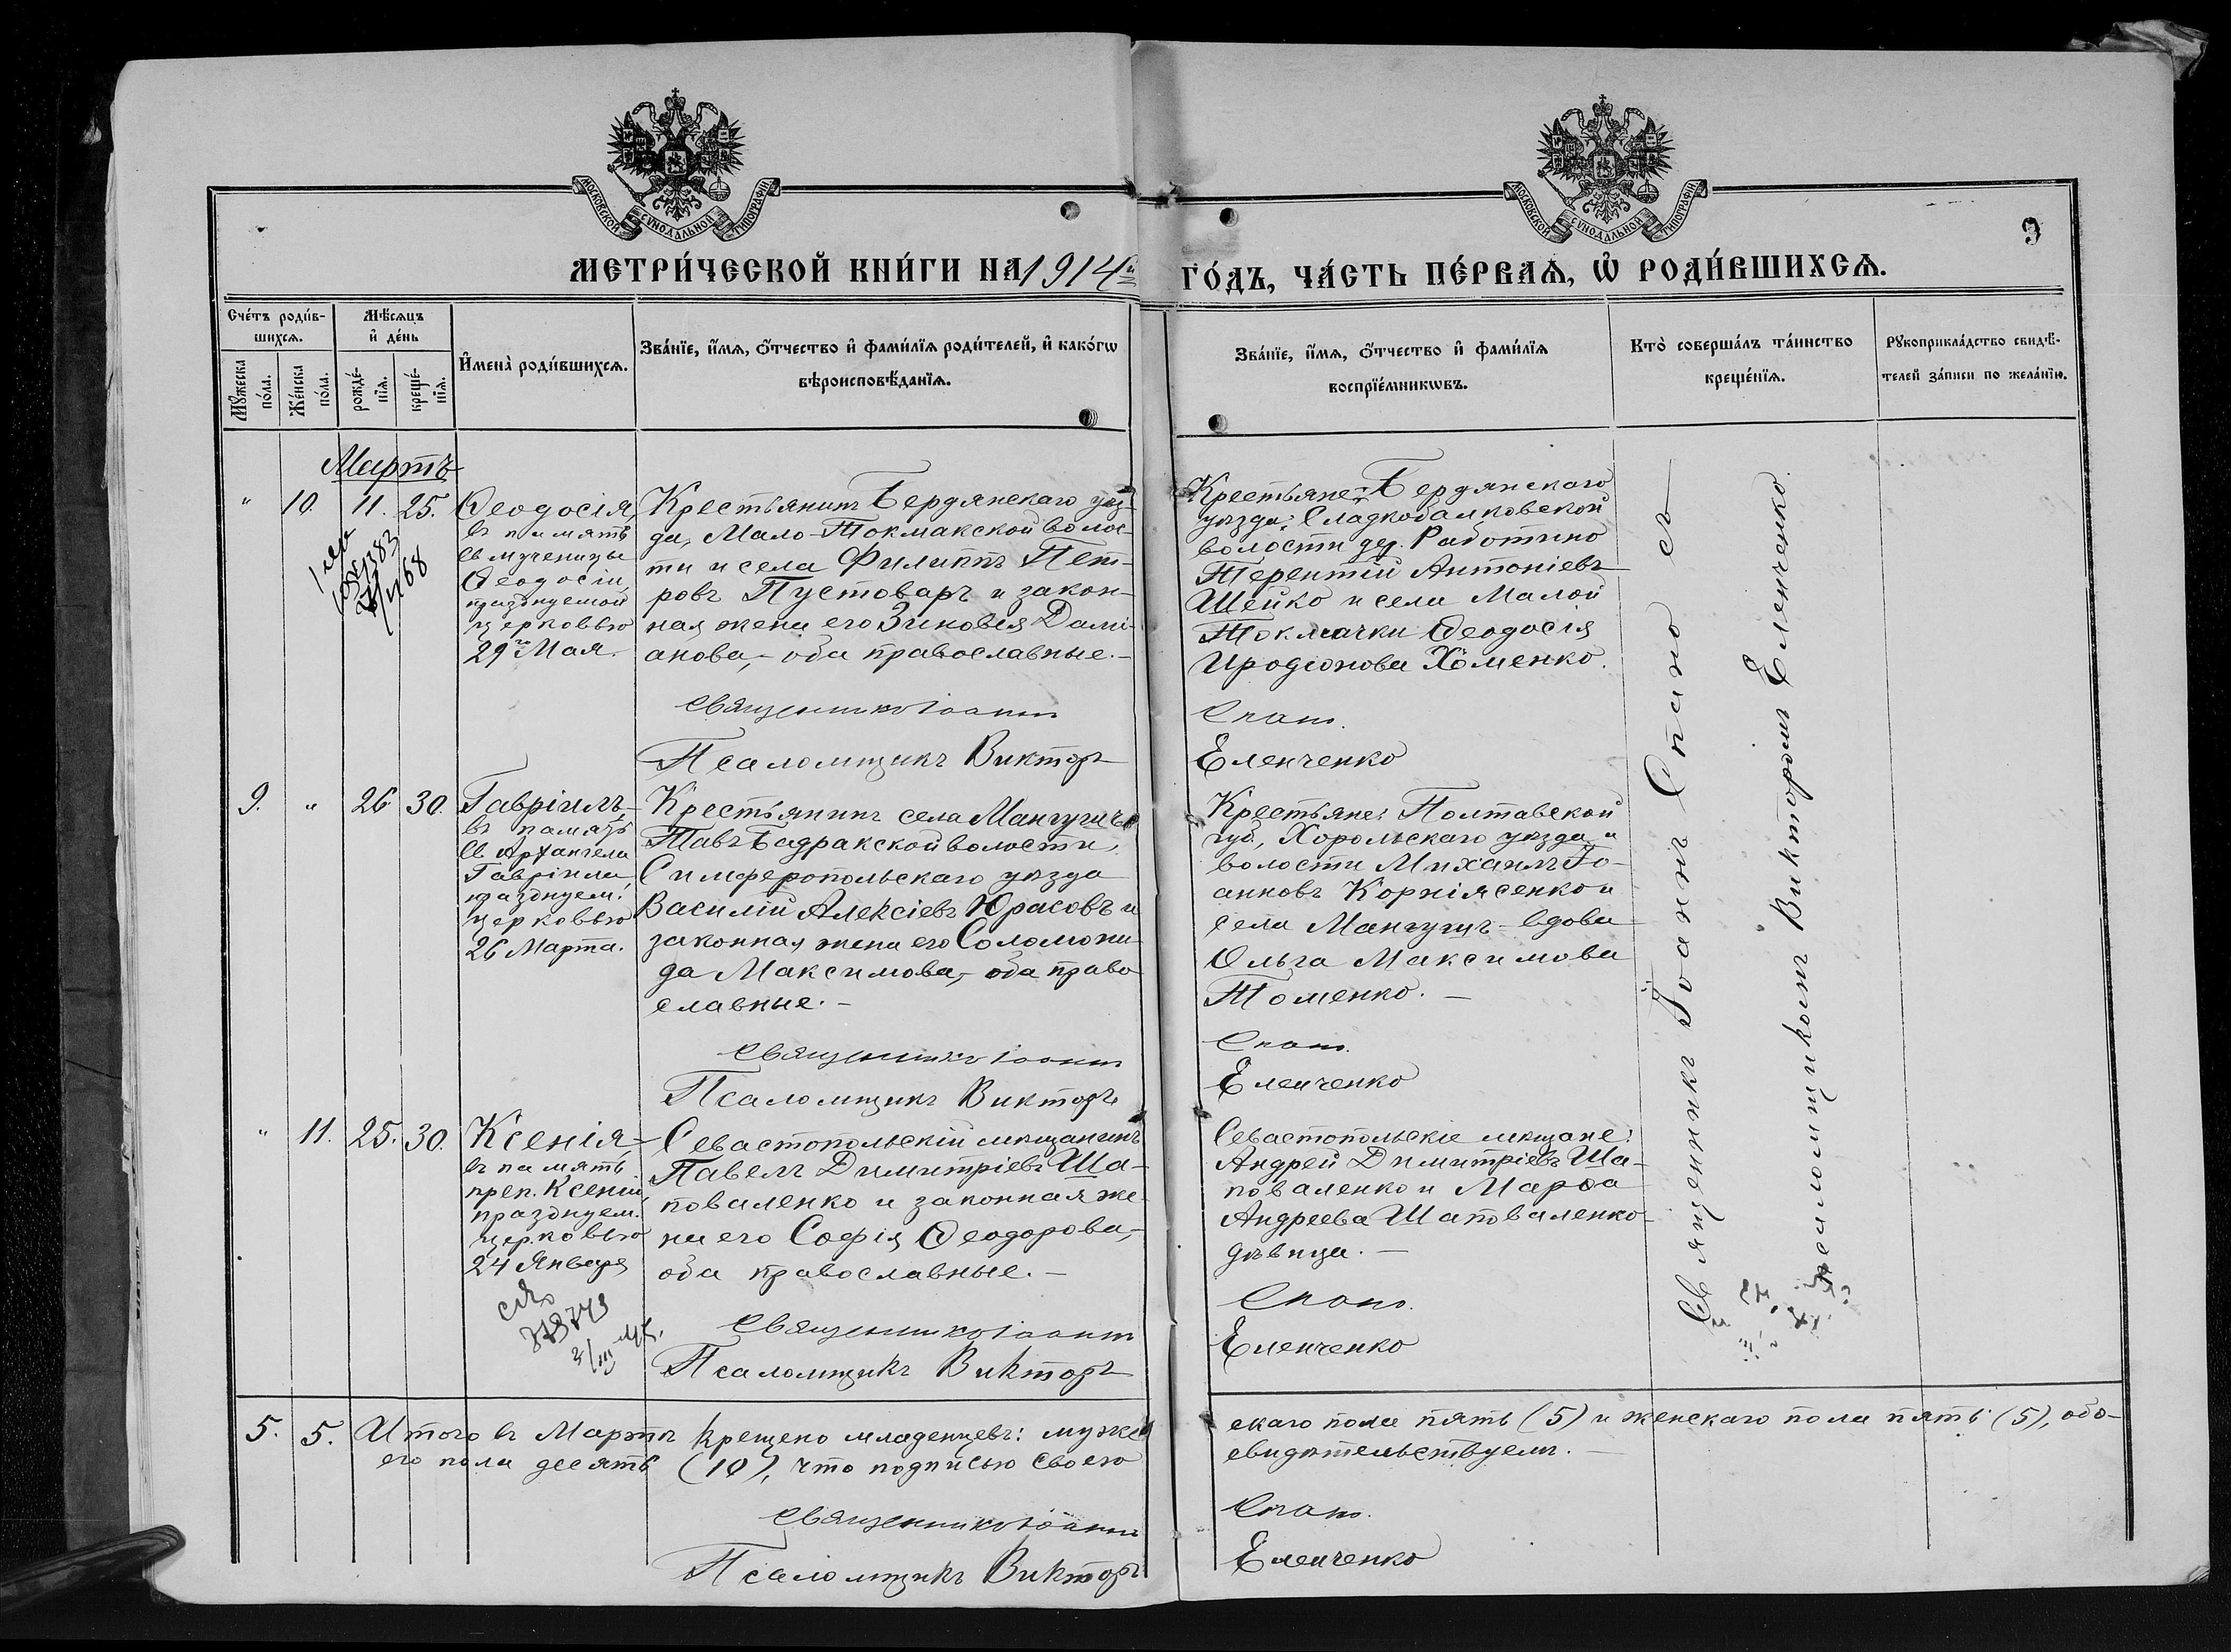 МОСКОВСКОЙ СѴНОДАЛЬНОЙ ТИПОГРАФІИ
МОСКОВСКОЙ СѴНОДАЛЬНОЙ ТИПОГРАФІИ
9
МЕТРИ́ЧЕСКОЙ КНИ́ГИ НА 1914й
ГО́ДЪ, ЧА́СТЬ ПЕ́РВАѦ, Ѡ҆ РОДИ́ВШИХСѦ.
Сче́тъ роди́в-
шихсѧ.
Мꙋ́жеска по́ла.
Же́нска по́ла.
Мѣ́сѧцъ
и҆ де́нь
рожде́-
нїѧ.
креще́-
нїѧ.
И҆мена̀ роди́вшихсѧ.
Зва́нїе, и҆́мѧ, ѻ҆́тчество и҆ фами́лїѧ роди́телей, и҆ како́гѡ
вѣроисповѣ́данїѧ.
Зва́нїе, и҆́мѧ, ѻ҆́тчество и҆ фами́лїѧ
воспрїе́мникѡвъ.
Кто̀ соверша́лъ та́инство
креще́нїѧ.
Рꙋкоприкла́дство свидѣ́-
телей за́писи по жела́нїю.
Мартъ
" 10. 11. 25.
Ѳеодосія,
въ память
Св мученицы
Ѳеодосіи,
празднуемой
церковью
29го Мая.
Крестьянинъ Бердянскаго уѣз-
да, Мало-Токмакской волос-
ти и села Филиппъ Пет-
ровъ Пустоваръ и закон-
ная жена его Зиновія Дамі-
анова, - оба православные. -
Священникъ Іоаннъ
Псаломщикъ Викторъ
Крестьяне: Бердянскаго
уѣзда, Сладкобалковской
волости дер. Работино
Терентій Антоніевъ
Шейко и села Малой
Токмачки Ѳеодосія
Иродіонова Хоменко.
Спано.
Еленченко
9. " 26 30.
Гавріилъ,
въ память
Св Архангела
Гавріила
празднуем.
церковью
26 Марта.
Крестьянинъ села Мангушъ
Тавъ Бадракской волости,
Симферопольскаго уѣзда
Василій Алексіевъ Юрасовъ и
законная жена его Соломони-
да Максимова, - оба право
славные. -
Священникъ Іоаннъ
Псаломщикъ Викторъ
Крестьяне: Полтавской
губ., Хорольскаго уѣзда и
волости Михаилъ Іо-
анновъ Корніясенко и
села Мангушъ - вдова
Ольга Максимова
Томенко. -
Спано.
Еленченко
" 11. 25. 30.
Ксенія,
въ память
преп. Ксеніи,
празднуем.
церковью
24 Января
Севастопольскій мѣщанинъ
Павелъ Димитріевъ Ша-
поваленко и законная же-
на его Софія Ѳеодорова, -
оба православные. -
Священникъ Іоаннъ
Псаломщикъ Викторъ
Севастопольскіе мѣщане:
Андрей Димитріевъ Ша-
поваленко и Марѳа
Андреева Шаповаленко -
дѣвица. -
Спано.
Еленченко
Священникъ Іоаннъ Спано съ
псаломщикомъ Викторомъ Еленченко
5. 5. Итого въ Мартѣ крещено младенцевъ: мужс
скаго пола пять (5) и женскаго пола пять (5), обо-
его пола десять (10), что подписью своею
свидѣтельствуемъ. -
Священникъ Іоаннъ
Спано.
Псаломщикъ Викторъ
Еленченко